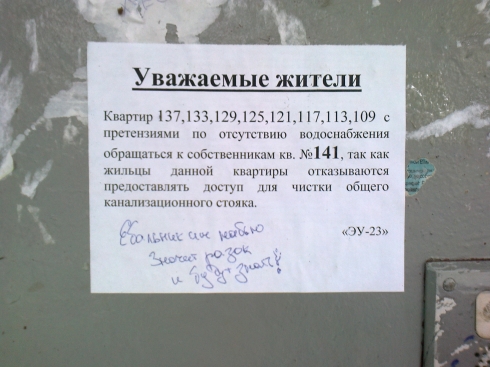 Уважаемые жители
Квартир 137,133,129,125,121,117,113,109 с
претензиями по отсутствию водоснабжения
обращаться к собственникам кв. №141, так как
жильцы данной квартиры отказываются
предоставлять доступ для чистки общего
канализационного стояка.
«ЭУ-23»
Ебальник им набью
разок
и будут знать!